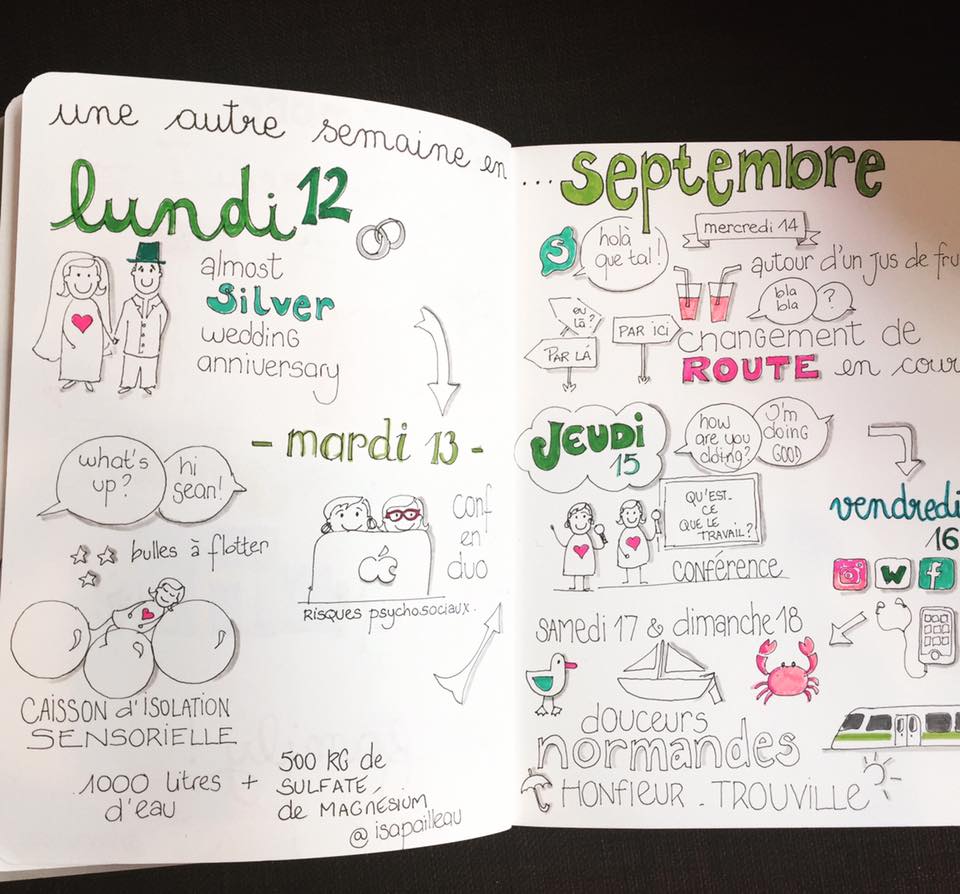 une autre semaine en
lundi 12
almost
silver
wedding
anniversary
- mardi 13 -
what's
up?
hi
sean!
bulles à flotter
conf
en
duo
RISQUES psychosociaux.
CAISSON d'ISOLATION
SENSORIELLE
1000 litres
d'eau
+
500 KG de
SULFATE
de MAGNÉSIUM
@isapailleau
... septembre
S
holà
que tal!
mercredi 14
autour d'un jus de fru
bla
bla
?
OU
LÀ?
PAR LÀ
PAR ICI
changement de
ROUTE en cour
JEUDI
15
how
are you
doing?
I'm
doing
GOOD
QU'EST-
CE
QUE LE
TRAVAIL?!
CONFÉRENCE
vendredi
16
W
f
SAMEDI 17 & dimanche 18
douceurs
normandes
HONFLEUR . TROUVILLE